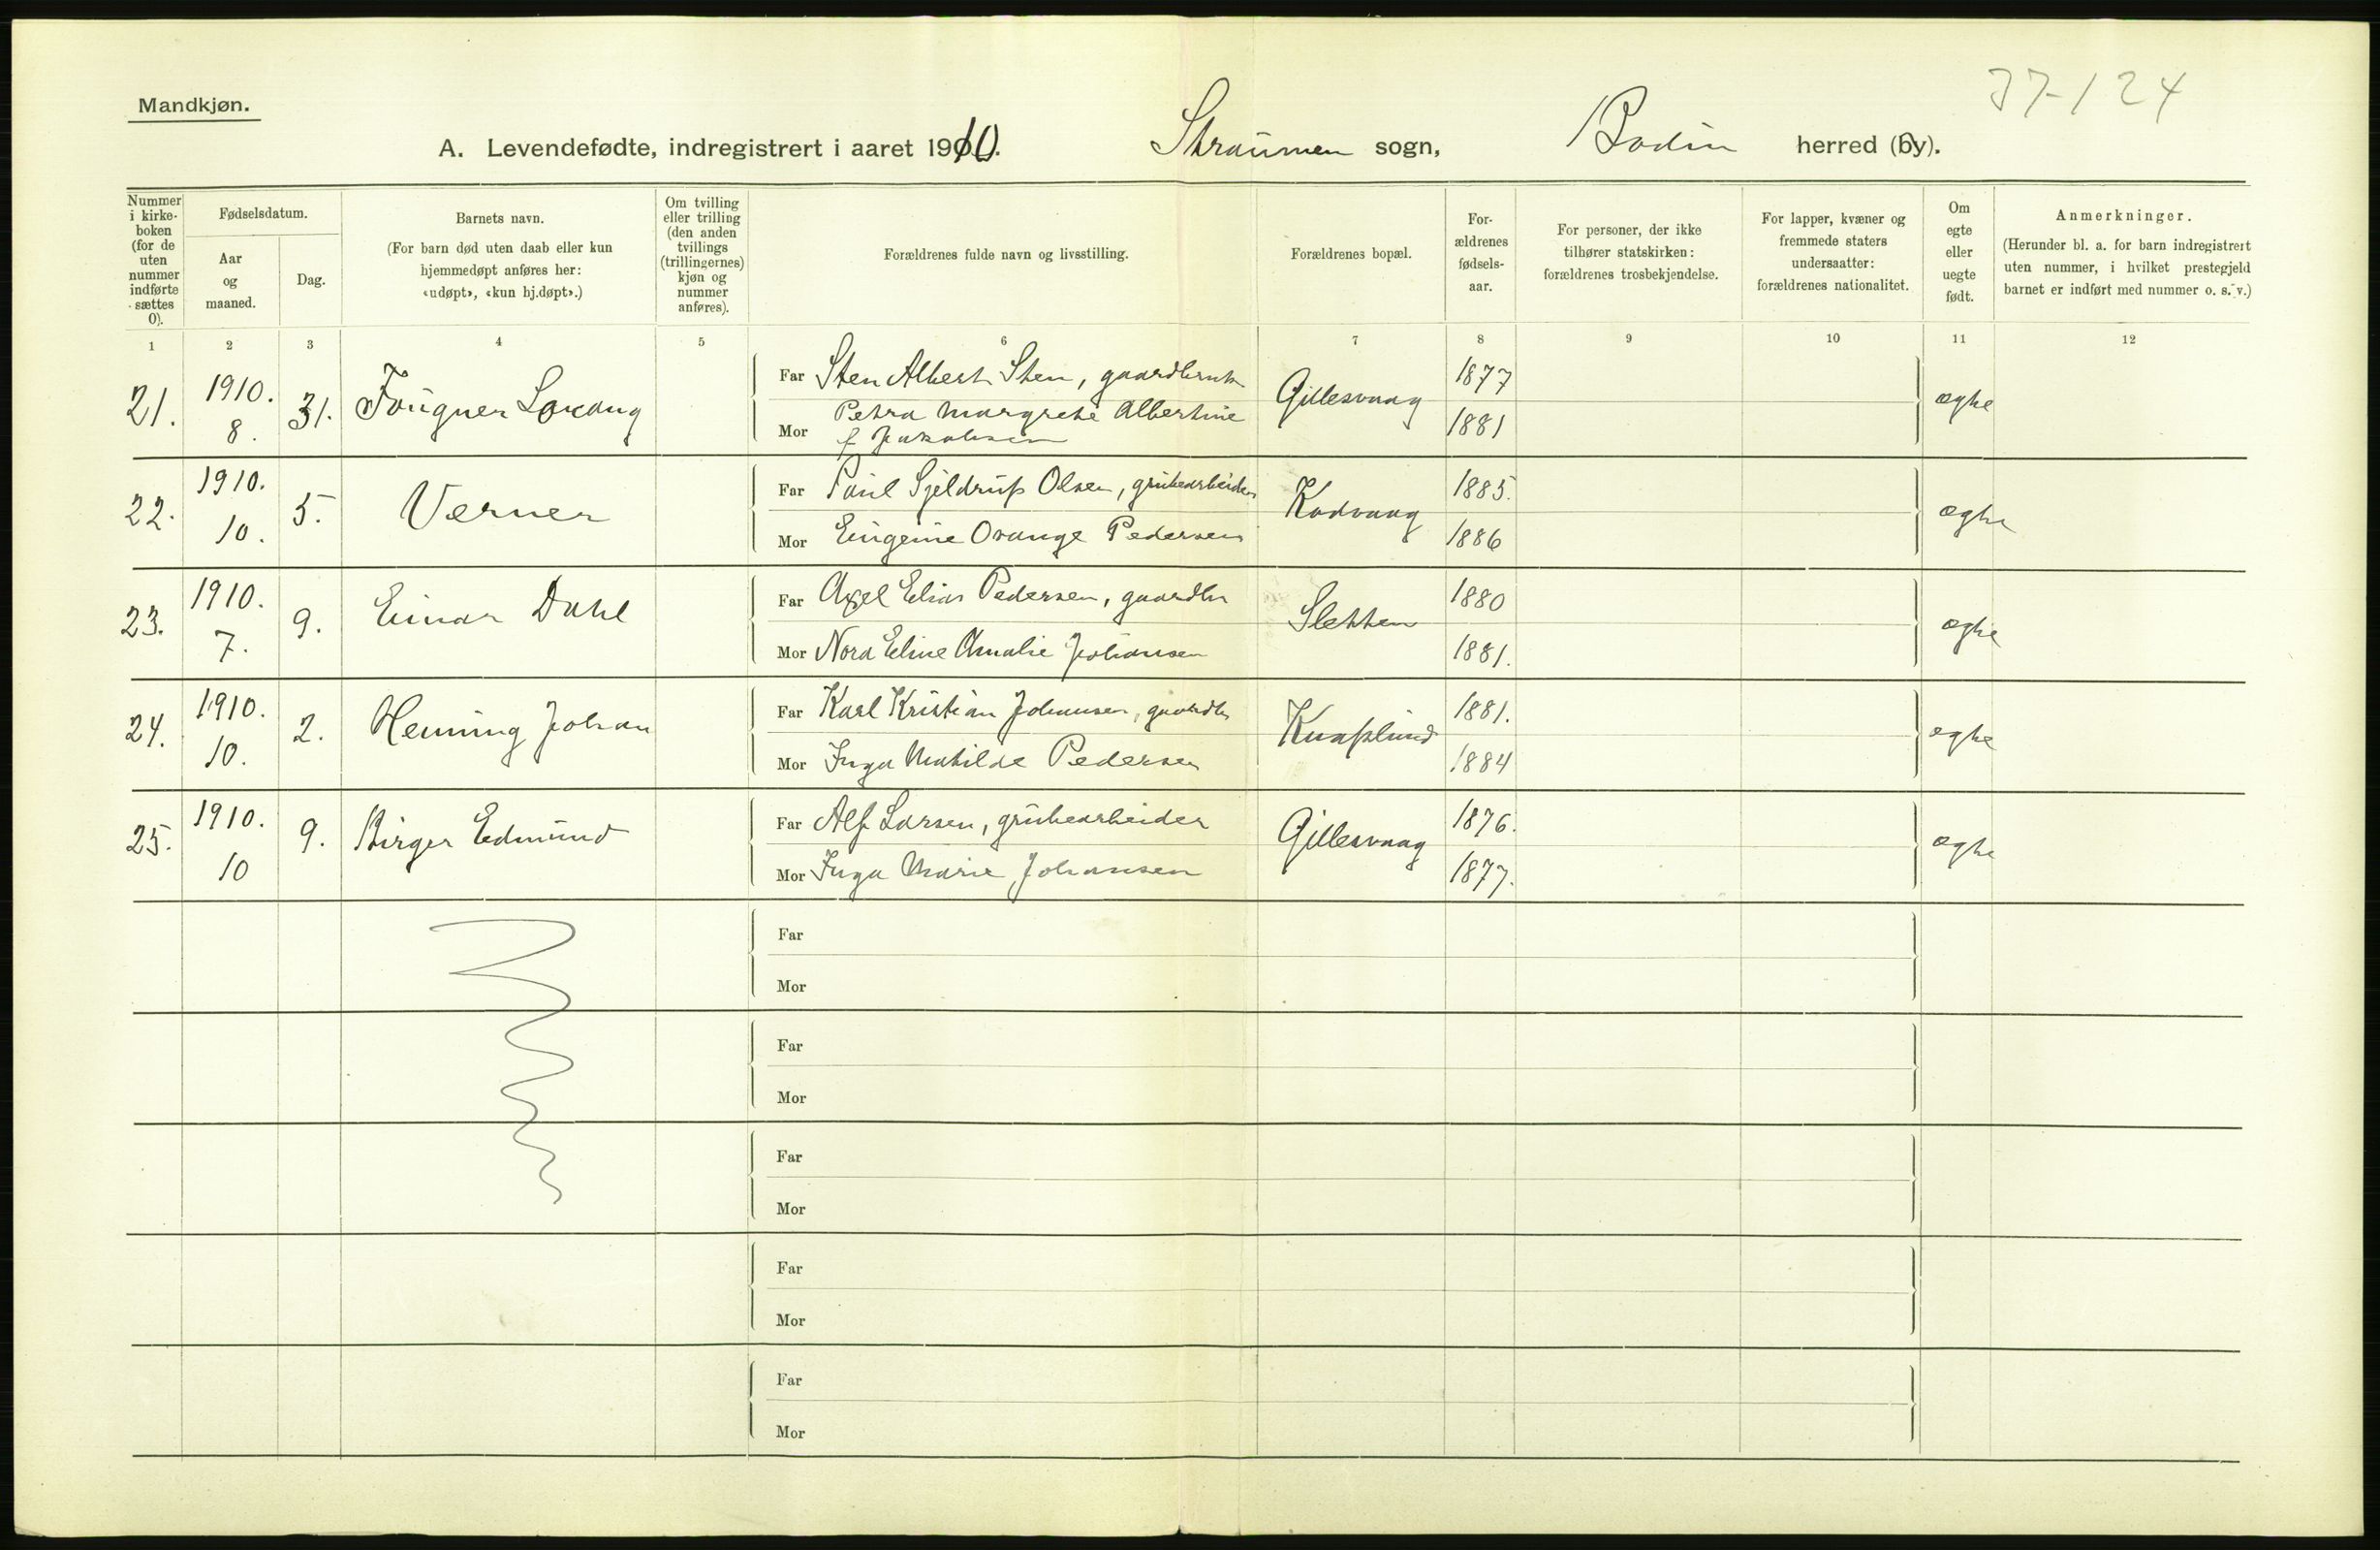 37-124
Mandkjøn.
A. Levendefødte, indregistrert i aaret 1910. Straumen sogn, Bodin herred (by).
Nummer i kirke- boken (for de uten nummer indførte sættes 0).
Fødselsdatum.
Aar og maaned.
Dag.
Barnets navn.
(For barn død uten daab eller kun hjemmedøpt anføres her: «udøpt», «kun hj.døpt».)
Om tvilling eller trilling (den anden tvillings (trillingernes) kjøn og nummer anføres).
Forældrenes fulde navn og livsstilling.
Forældrenes bopæl.
For- ældrenes fødsels- aar.
For personer, der ikke tilhører statskirken: forældrenes trosbekjendelse.
For lapper, kvæner og fremmede staters undersaatter: forældrenes nationalitet.
Om egte eller uegte født.
Anmerkninger.
(Herunder bl. a. for barn indregistrert uten nummer, i hvilket prestegjeld barnet er indført med nummer o. s. v.)
1 2 3 4 5 6 7 8 9 10 11 12
21. 1910. 8. 31. Fougner Lorang
Far Sten Albert Sten, gaardbruk Gillesvaag 1877 ægte
Mor Petra Margrete Albertine f Jakobsen 1881
22. 1910. 10. 5. Verner
Far Paul Sjeldrup Olsen, grubearbeider Kodvaag 1885. ægte
Mor Eugenie Orange Pedersen 1886
23. 1910. 7. 9. Einar Dahl
Far Axel Elias Pedersen, gaardbr Sletten 1880 ægte
Mor Nora Eline Amalie Johansen 1881.
24. 1910. 10. 2. Henning Johan
Far Karl Kristian Johansen, gaardbr Knaplund 1881. egte
Mor Inga Matilde Pedersen 1884
25. 1910. 10 9. Birger Edmund
Far Alf Larsen, grubearbeider Gillesvaag 1876. ægte
Mor Inga Marie Johansen 1877.
Far
Mor
Far
Mor
Far
Mor
Far
Mor
Far
Mor